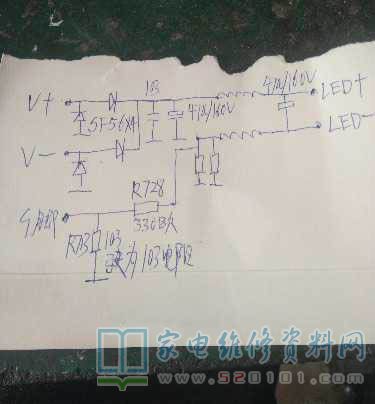 V+
103
47u/160V
47u/160V
LED+
SF56XA
V-
LED-
R728
330欧
R73
103
改为103电阻
家电维修资料网
www.520101.com